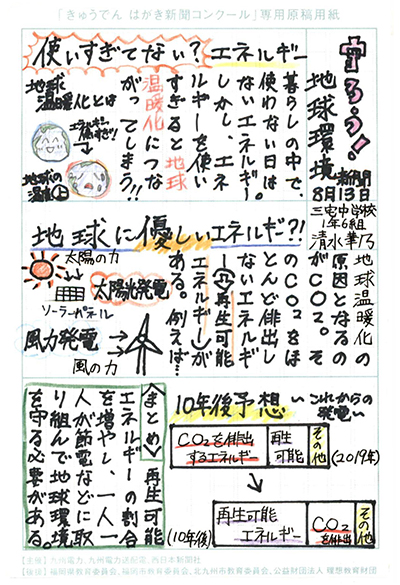 「きゅうでん はがき新聞コンクール」専用原稿用紙
守ろう！
地球環境
新聞
8月13日
三宅中学校
1年6組
使いすぎてない？エネルギー
暮らしの中で、
使わない日は
ないエネルギー。
しかし、エネ
ルギーを使い
すぎると地球
温暖化につな
がってしまう!!
地球
温暖化とは
エネルギー
使いすぎ!!
地球の
温度上
地球に優しいエネルギー?!
地球温暖化の
原因となるの
がCO2。そ
のCO2をほ
とんど排出し
ないエネルギ
ー(再生可能
エネルギー)が
ある。例えば…
太陽の力
ソーラーパネル
太陽光発電
風力発電
風の力
10年後予想
これからの
発電
CO2を排出
するエネルギー
再生
可能
その他
(2019年)
再生可能
エネルギー
CO2
を排出
その他
(10年後)
〈まとめ〉再生可能
エネルギーの割合
を増やし、一人一
人が節電などに取
り組んで地球環境
を守る必要がある。
【主催】九州電力、九州電力送配電、西日本新聞社
【後援】福岡県教育委員会、福岡市教育委員会、北九州市教育委員会、公益財団法人 理想教育財団